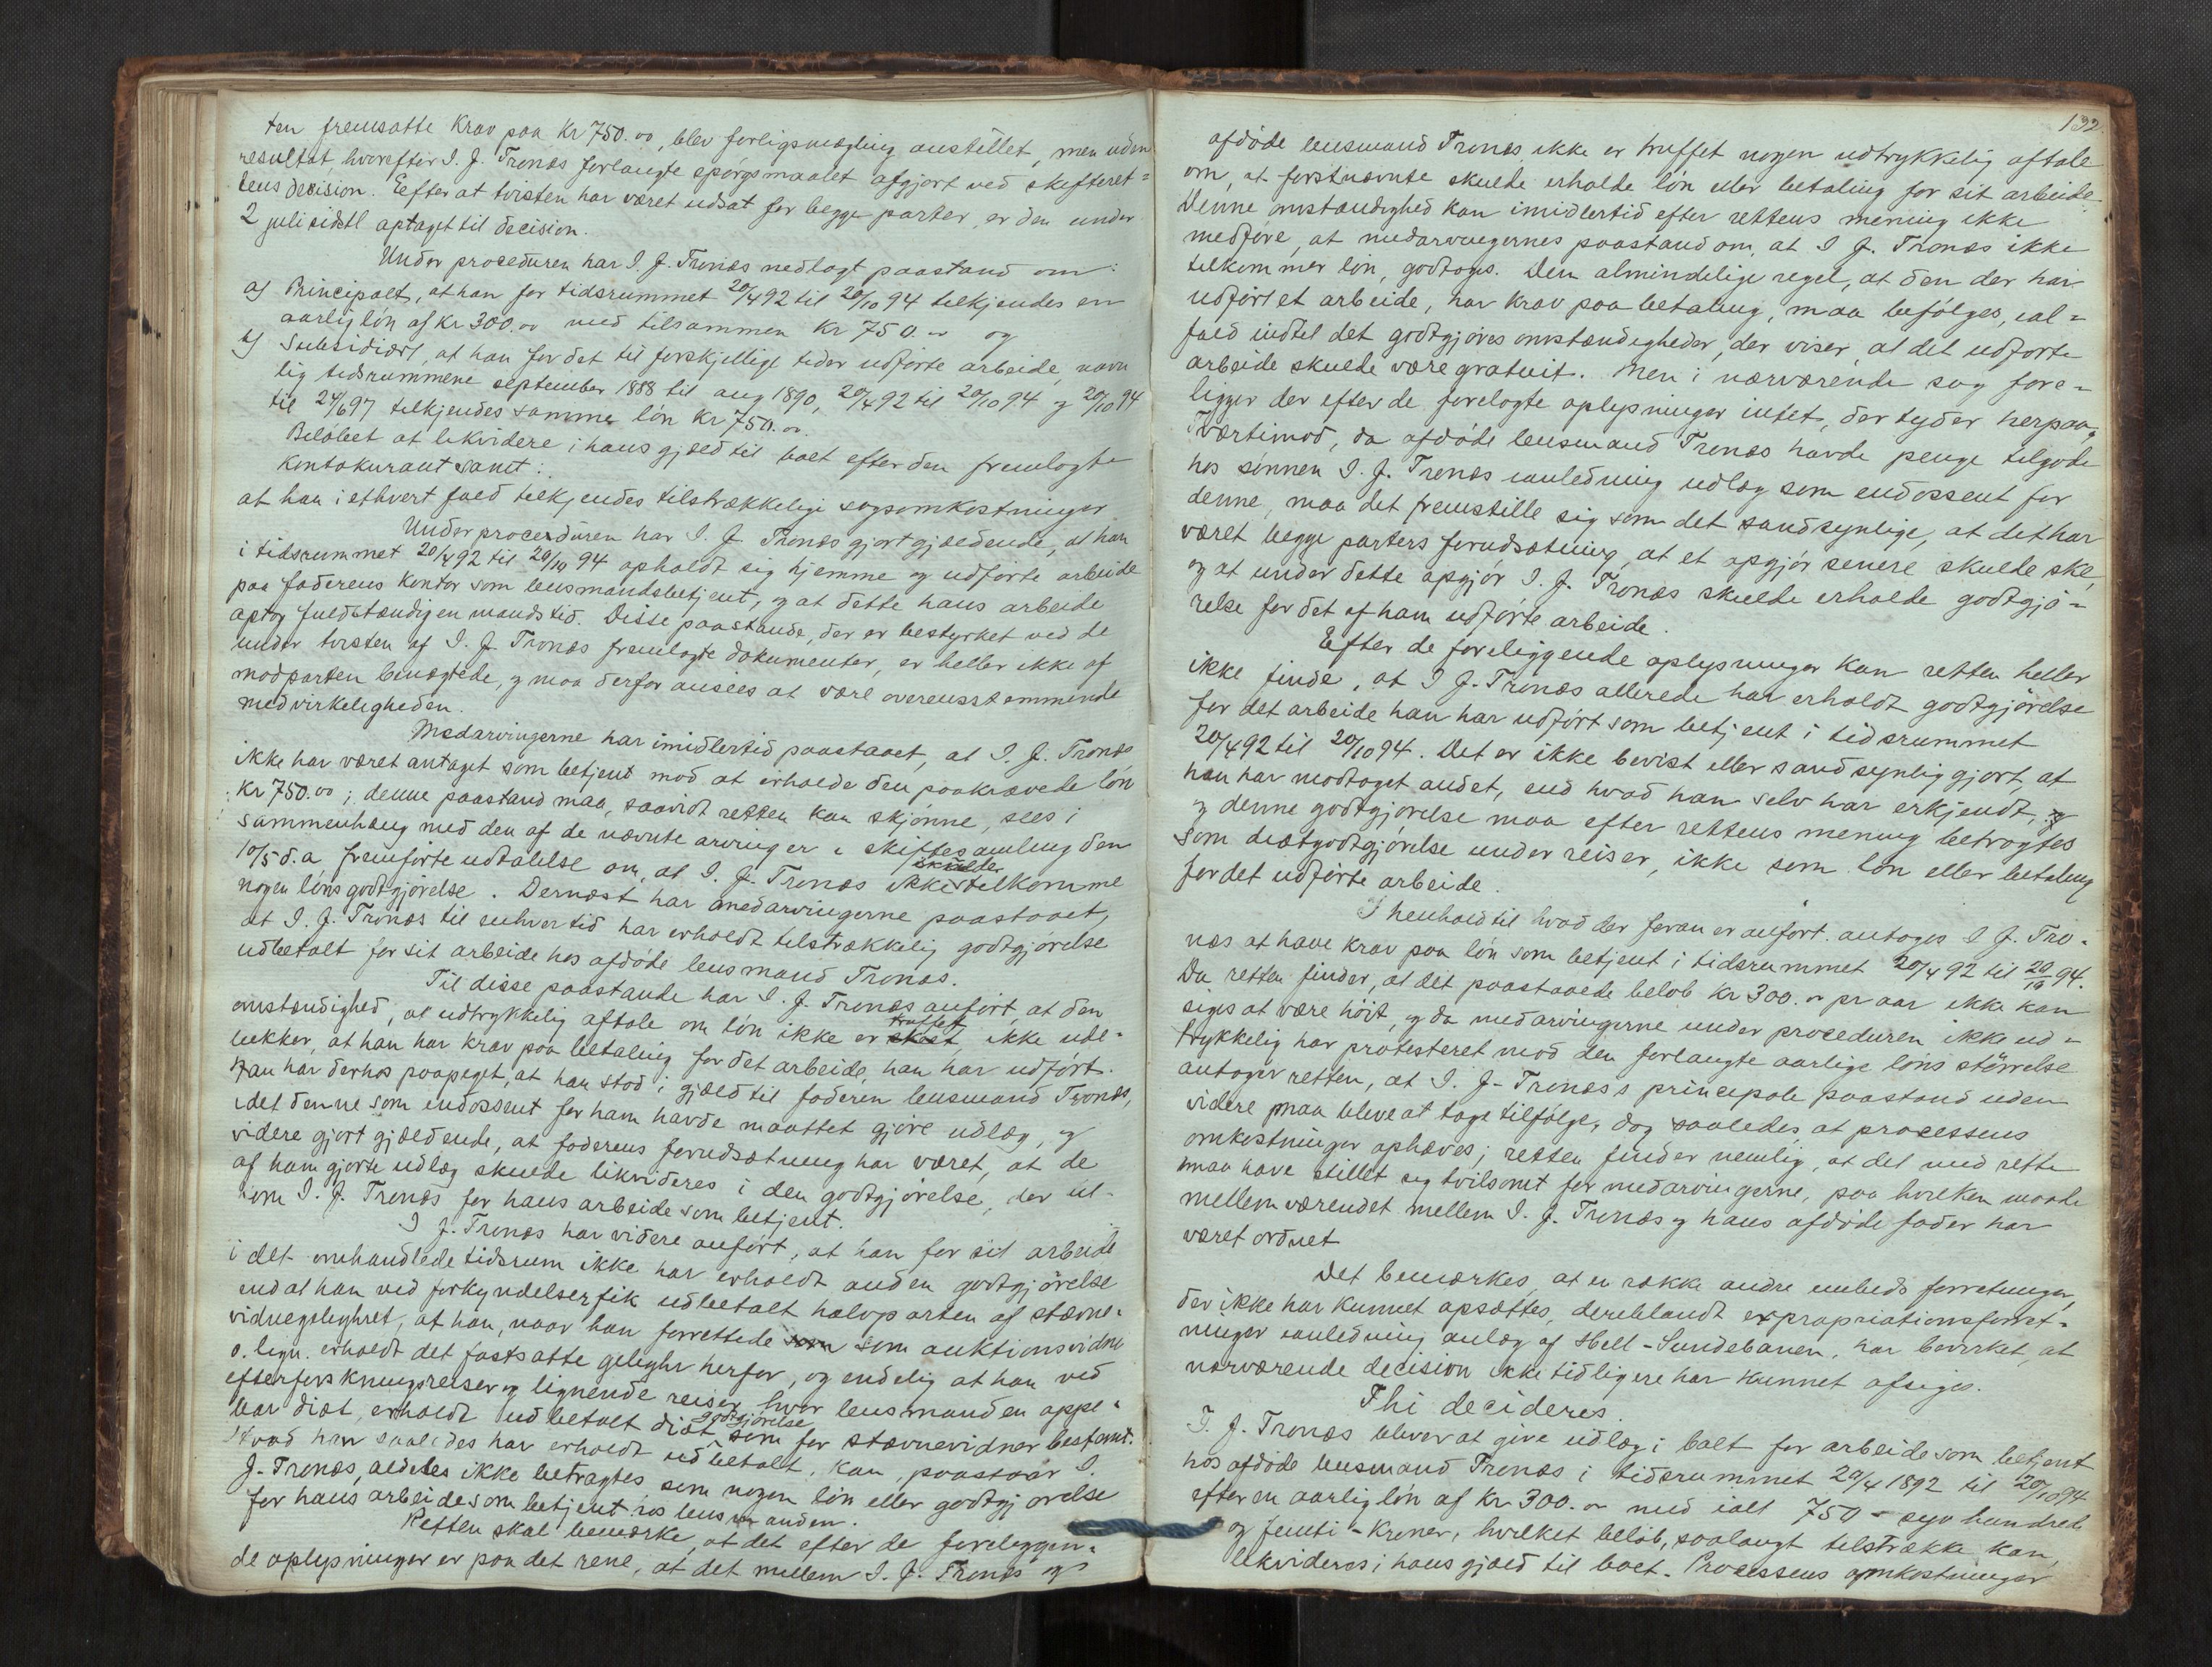 ten fremsatte krav paa kr 750.00, blev forligsmægling anstillet, men uden
resultat, hvorefter I. J. Trenæs forlangte spørgsmaalet afgjort ved skifteret=
tens decision. Eefter at tvisten har været udsat for begge parter, er den under
2 juli sidstl optaget til decision.
Under proceduren har I. J. Trenæs nedlagt paastand om:
a) Principalt, at han for tidsrummet 20/4 92 til 20/10 94 tilkjendes en
aarlig løn af kr 300.00 med tilsammen kr 750.00 og
b) Subsidiært, at han for det til forskjellige tider udførte arbeide, navn
lig tidsrummene september 1888 til aug 1890, 20/4 92 til 20/10 94 og 20/10 94
til 24/6 97 tilkjendes samme løn kr 750.00.
Beløbet at likvidere i hans gjæld til boet efter den fremlagte
kontokurant samt:
at han i ethvert fald tilkjendes tilstrækkelige sagsomkostninger
Under proceduren har I. J. Trenæs gjort gjældende, at han
i tidsrummet 20/4 92 til 20/10 94 opholdt sig hjemme og udførte arbeide
paa faderens kontor som lensmandsbetjent, og at dette hans arbeide
optog fuldstændig en mands tid. Disse paastande, der er bestyrket ved de
under tvisten af I. J. Trenæs fremlagte dokumenter, er heller ikke af
modparten benægtede, og maa derfor ansees at være overensstemmende
med virkeligheden.
Medarvingerne har imidlertid paastaaet, at I. J. Trenæs
ikke har været antaget som betjent mod at erholde den paakrævede løn
kr 750.00; denne paastand maa, saavidt retten kan skjønne, sees i
sammenhæng med den af de nævnte arvinger i skiftesamling den
10/5 d. a fremførte udtalelse om, at I. J. Trenæs ikke skulde tilkomme
nogen lønsgodtgjørelse. Dernæst har medarvingerne paastaaet,
at I. J. Trenæs til enhver tid har erholdt tilstrækkelig godtgjørelse
udbetalt for sit arbeide hos afdøde lensmand Trenæs.
Til disse paastande har I. J. Trenæs anført, at den
omstændighed, at udtrykkelig aftale om løn ikke er skeet truffet, ikke ude=
lukker, at han har krav paa betaling for det arbeide, han har udført.
Han har derhos paapeget, at han stod i gjæld til faderen lensmand Trenæs,
idet denne som endossent for ham havde maattet gjøre udlæg, og
videre gjort gjældende, at faderens forudsætning har været, at de
af ham gjorte udlæg skulde likvideres i den godtgjørelse, der til=
kom I. J. Trenæs for hans arbeide som betjent.
I J. Trenæs har videre anført, at han for sit arbeide
i det omhandlede tidsrum ikke har erholdt anden godtgjørelse
end at han ved forkyndelser fik udbetalt halvparten af stævne=
vidnegebyhret, at han, naar han forrettede som som auktionsvidne
o. lign. erholdt det fastsatte gebyhr herfor, og endelig at han ved
efterforskningsreiser og lignende reiser, hvor lensmanden oppe=
bar diæt, erholdt udbetalt diætgodtgjørelse som for stævnevidner bestemt.
Hvad han saaledes har erholdt udbetalt, kan, paastaar I.
J. Trenæs, aldeles ikke betragtes som nogen løn eller godtgjørelse
for hans arbeide som betjent hos lensmanden.
Retten skal bemærke, at det efter de foreliggen=
de oplysninger er paa det rene, at det mellem I. J. Trenæs og
132.
afdøde lensmand Trenæs ikke er truffet nogen udtrykkelig aftale
om, at førstnævnte skulde erholde løn eller betaling for sit arbeide.
Denne omstændighed kan imidlertid efter rettens mening ikke
medføre, at medarvingernes paastand om, at I J. Trenæs ikke
tilkommer løn, godtages. Den almindelige regel, at den der har
udført et arbeide, har krav paa betaling, maa befølges, ial=
fald indtil det godtgjøres omstændigheder, der viser, at det udførte
arbeide skulde være gratuit. Men i nærværende sag fore=
ligger der efter de forelagte oplysninger intet, der tyder herpaa.
Tværtimod, da afdøde lensmand Trenæs havde penge tilgode
hos sønnen I. J. Trenæs ianledning udlæg som endossent for
denne, maa det fremstille sig som det sandsynlige, at det har
været begge parters forudsætning, at et opgjør senere skulde ske,
og at under dette opgjør I. J. Trenæs skulde erholde godtgjø=
relse for det af ham udførte arbeide.
Efter de foreliggende oplysninger kan retten heller
ikke finde, at I J. Trenæs allerede har erholdt godtgjørelse
for det arbeide han har udført som betjent i tidsrummet
20/4 92 til 20/10 94. Det er ikke bevist eller sandsynliggjort, at
han har modtaget andet, end hvad han selv har erkjendt, og
og denne godtgjørelse maa efter rettens mening betragtes
som diætgodtgjørelse under reiser, ikke som løn eller betaling
for det udførte arbeide.
I henhold til hvad der foran er anført antages I J. Tre=
næs at have krav paa løn som betjent i tidsrummet 20/4 92 til 20/10 94.
Da retten finder, at det paastaaede beløb kr 300.00 pr aar ikke kan
siges at være høit, og da medarvingerne under proceduren ikke ud=
trykkelig har protesteret mod den forlangte aarlige løns størrelse
antager retten, at I. J. Trenæs's principale paastand uden
videre maa blive at tage tilfølge, dog saaledes at processens
omkostninger ophæves; retten finder nemlig, at det med rette
maa have stillet sig tvilsomt for medarvingerne, paa hvilken maade
mellemværendet mellem I. J. Trenæs og hans afdøde fader har
været ordnet
Det bemærkes, at en række andre embedsforretninger,
der ikke har kunnet opsættes, deriblandt expropriationsforret=
ninger ianledning anlæg af Hell-Sundebanen, har bevirket, at
nærværende decision ikke tidligere har kunnet afsiges.
Thi decideres.
I. J. Trenæs bliver at give udlæg i boet for arbeide som betjent
hos afdøde lensmand Trenæs i tidsrummet 20/4 1892 til 20/10 94
efter en aarlig løn af kr 300.00 med ialt 750 - syv hundrede
og femti - kroner, hvilket beløb, saalangt tilstrække kan,
likvideres i hans gjæld til boet. Processens omkostninger